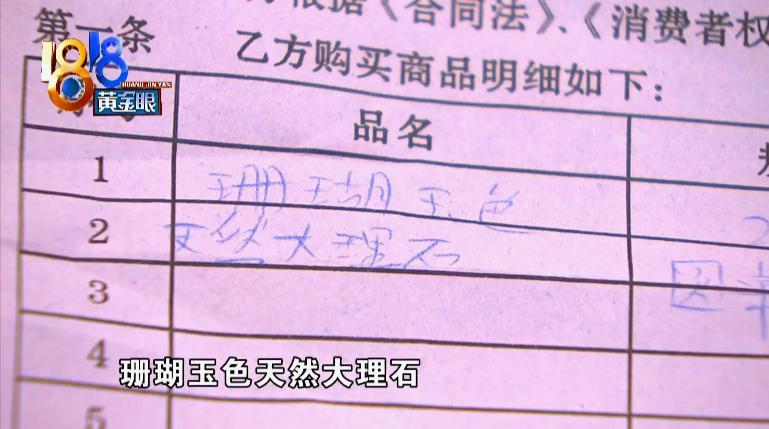 根据《合同法》、《消费者权
第一条 乙方购买商品明细如下：
1818
HUANG JIN YAN
黄金眼
品名
1 珊瑚玉色
2 天然大理石
圆
3
4
珊瑚玉色天然大理石
5